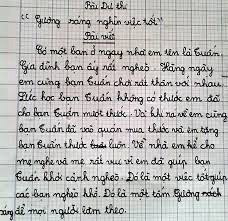 Bài Dự thi
"Gương sáng nghìn việc tốt"
Bài viết
Có một bạn ở ngay nhà em tên là Tuấn.
Gia đình bạn ấy rất nghèo. Hằng ngày
em cùng bạn Tuấn chơi rất thân với nhau.
Lúc học bạn Tuấn không có thước em đã
cho bạn Tuấn mượt thước. Và khi ra về em cùng
bạn Tuấn đã vào quán mua thước và em tặng
bạn Tuấn thước luôn. Về nhà em kể cho
mẹ nghe và mẹ rất vui vì em đã giúp bạn
Tuấn khỏi cảnh nghèo. Đó là một việc tốt giúp
các bạn nghèo khó. Đó là một tấm gương
sáng để mọi người làm theo.